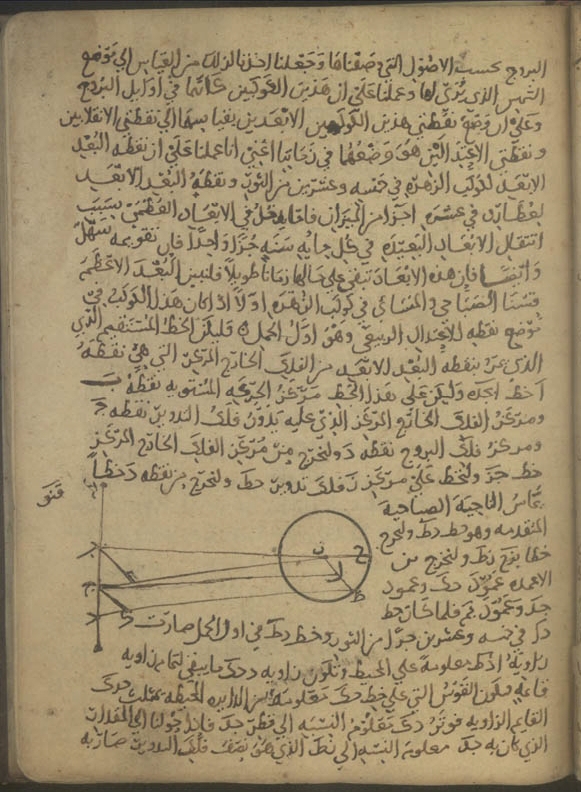 البروج بحسب الاصول التي وصفناها وجعلنا اخذنا لذلك من القياس الى موضع
الشمس الذي يرى لها وعملنا على ان هذين الكوكبين كانا في اوايل البروج
وعلى ان وضع نقطتي هذين الكوكبين الابعدين بقياسهما الى نقطتي الانقلابين
ونقطتي الاعتدالين هو وضعهما في زماننا اعني انا عملنا على ان نقطه البعد
الابعد لكوكب الزهره في خمسه وعشرين من الثور ونقطه البعد الابعد
لعطارد في عشره اجزا من الميزان فاما يدخل في الابعاد العظمى بسبب
انتقال الابعاد البعيده في كل مايه سنه جزا واحدا فان تقويمه سهل
وايضا فان هذه الابعاد تبقى على حالها زمانا طويلا فلنبين البعد الاعظم
قسنا الصباحي والمسائي في كوكب الزهره اولا اذا كان هذا الكوكب في
موضع نقطه الاعتدال الربيعي وهو اول الحمل فليكن الخط المستقيم الذي
الذي يمر بنقطه البعد الابعد من الفلك الخارج المركز التي هي نقطه
ا خط ابجده وليكن على هذا الخط مركز الحركه المستويه نقطه ب
ومركز الفلك الخارج المركز الذي عليه يدور فلك التدوير نقطه ج
ومركز فلك البروج نقطه د ولنخرج من مركز الفلك الخارج المركز
خط جز ولنخط على مركز ز فلك تدوير حط ولنخرج من نقطه د خطا
يماس الناحيه الصباحيه
المتقدمه وهو خط دط ولنخرج
خطا بزح زط ولنخرج من
الاعمده عمود دك وعمود
جل وعمود جم فلما كان خط
دا في خمسه وعشرين جزا من الثور وخط دط في اول الحمل صارت
زاويه ادط معلومه على المحيط وتكون زاويه دجك ما يبقى لتمام زاويه
قايمه فتكون القوس التي على خط دك معلومه من الدايره المحيطه بمثلث جدك
القايم الزاويه فوتر دك معلوم النسبه الى قطر جد فاذا حولنا الى المقدار
الذي كان به جد معلوم النسبه الى زط الذي هو نصف فلك التدوير صار به